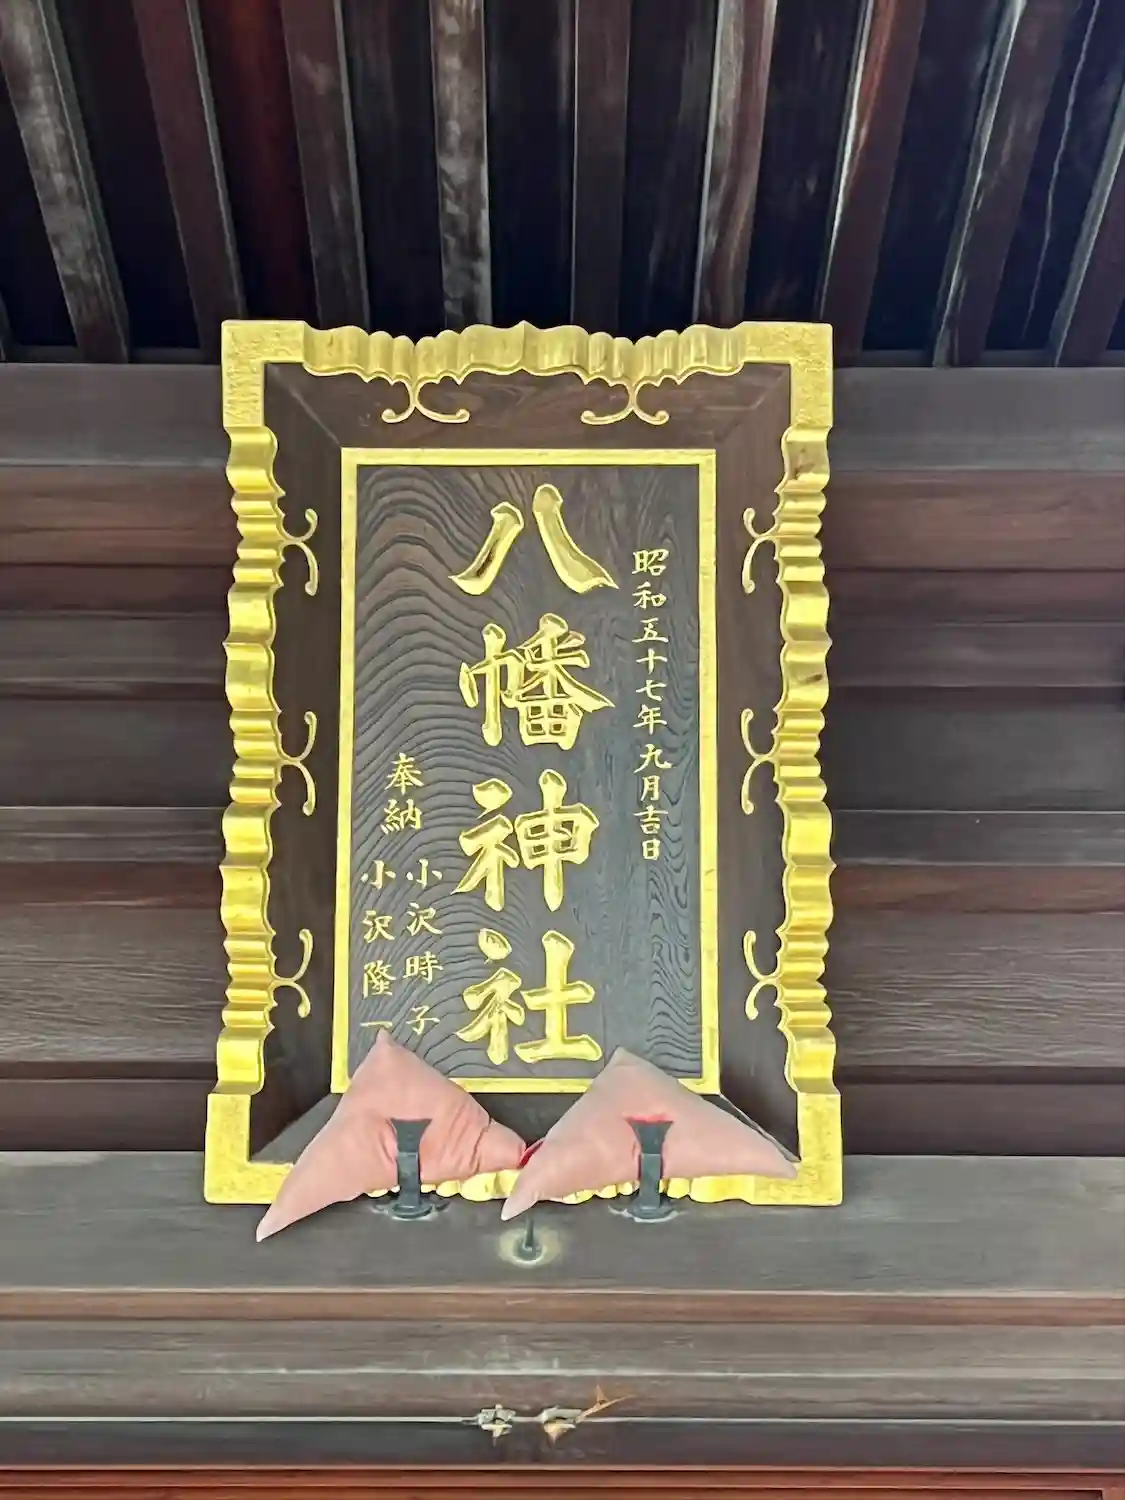 昭和五十七年九月吉日
八幡神社
奉納
小沢時子
小沢隆一